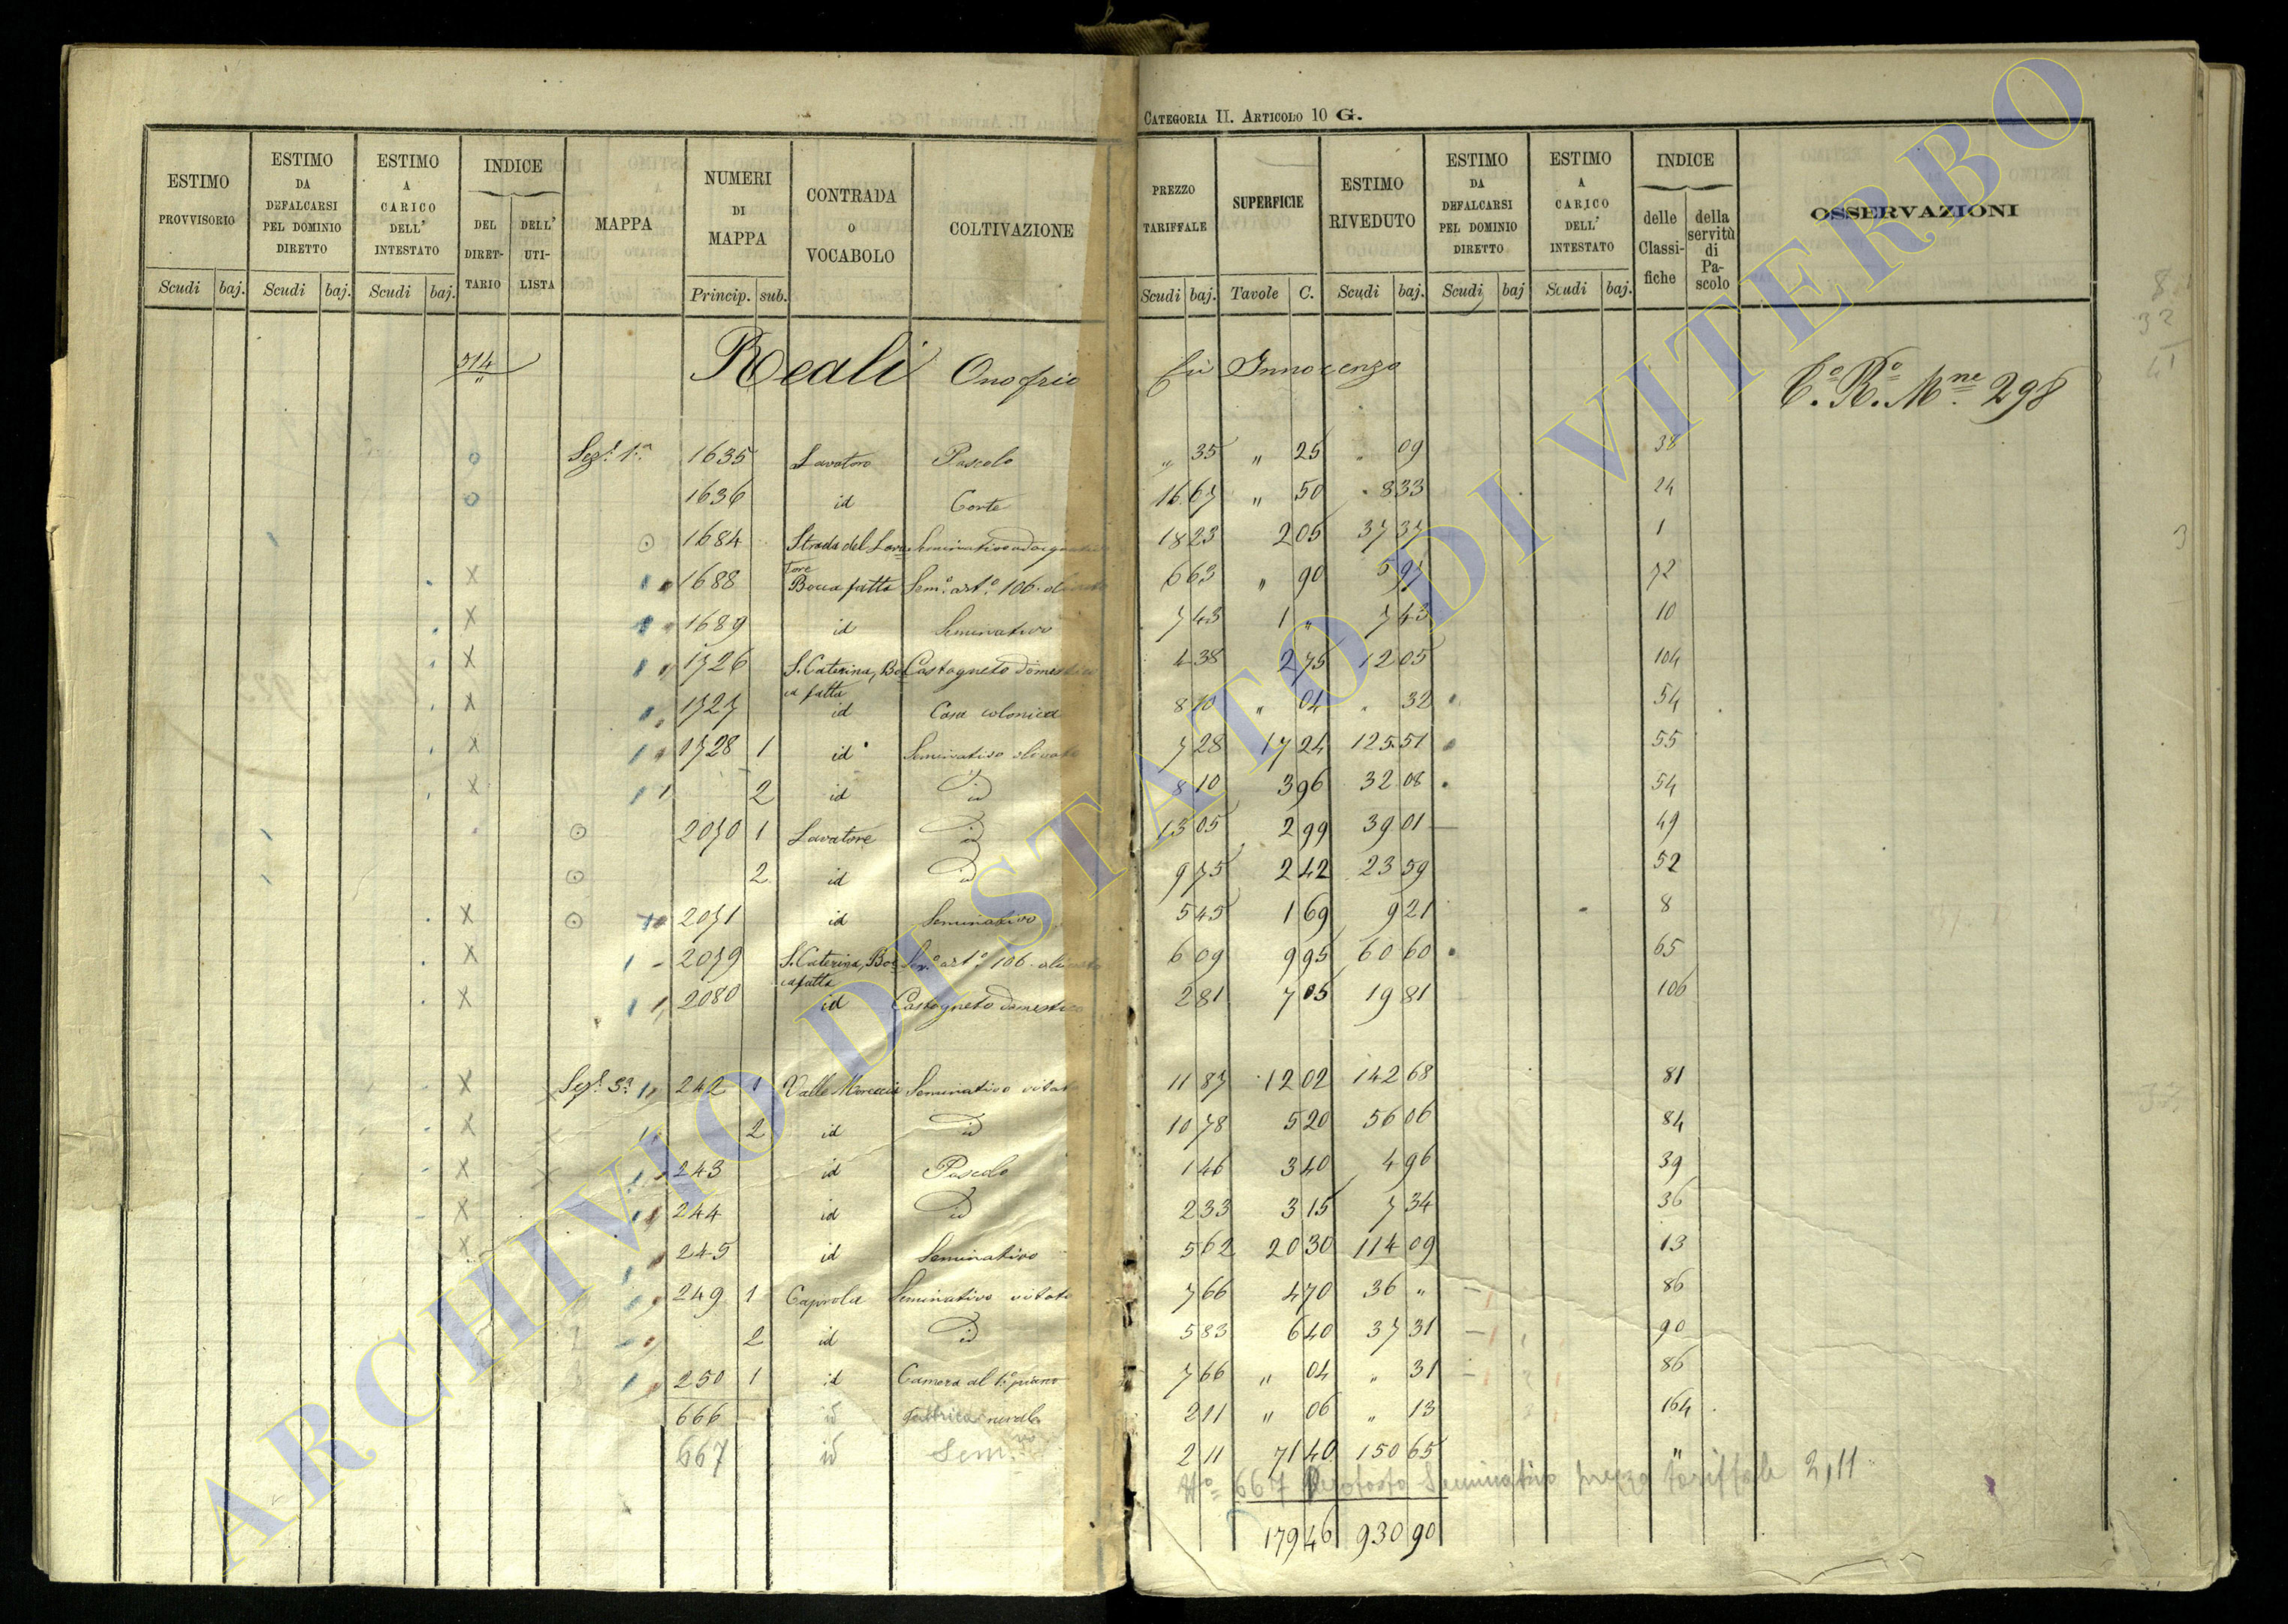 CATEGORIA II. ARTICOLO 10 G.
ESTIMO PROVVISORIO Scudi baj.
ESTIMO DA DEFALCARSI PEL DOMINIO DIRETTO Scudi baj.
ESTIMO A CARICO DELL' INTESTATO Scudi baj.
INDICE DEL DIRET-TARIO DELL' UTI-LISTA
MAPPA
NUMERI DI MAPPA Princip. sub.
CONTRADA O VOCABOLO
COLTIVAZIONE
PREZZO TARIFFALE Scudi baj.
SUPERFICIE Tavole C.
ESTIMO RIVEDUTO Scudi baj.
ESTIMO DA DEFALCARSI PEL DOMINIO DIRETTO Scudi baj
ESTIMO A CARICO DELL' INTESTATO Scudi baj.
INDICE delle Classi-fiche della servitù di Pa-scolo
OSSERVAZIONI
514 Reali Onofrio fu Innocenzo C.º R.º Mne. 298
Sez.e 1.a 1635 Lavatoro Pascolo " 35 " 25 " 09 38
1636 id Corte 16 67 " 50 8 33 24
1684 Strada del Lava= Seminativo adacquativo 18 23 2 05 37 37 1
tore
1688 Bocca fatta Sem.º art.º 106. olivato 6 63 " 90 5 97 72
1689 id Seminativo 7 43 1 " 7 43 10
1726 S. Caterina, Boc= Castagneto domestico 4 38 2 75 12 05 104
ca fatta
1727 id Casa colonica 8 10 " 04 " 32 54
1728 1 id Seminativo olivato 7 28 17 24 125 51 55
2 id id 8 10 3 96 32 08 54
2070 1 Lavatore id 13 05 2 99 39 01 49
2 id id 9 75 2 42 23 59 52
2071 id Seminativo 5 45 1 69 9 21 8
2079 S. Caterina, Boc= Sem.º art.º 106. olivato 6 09 9 95 60 60 65
ca fatta
2080 id Castagneto domestico 2 81 7 05 19 81 106
Sez.e 3.a 242 1 Valle Seminativo vitato 11 87 12 02 142 68 81
2 id id 10 78 5 20 56 06 84
243 id Pascolo 1 46 3 40 4 96 39
244 id id 2 33 3 15 7 34 36
245 id Seminativo 5 62 20 30 114 09 13
249 1 Caprola Seminativo vitato 7 66 4 70 36 " 86
2 id id 5 83 6 40 37 31 90
250 1 id Camera al 1.º piano 7 66 " 04 " 31 86
666 id Fabbrica rurale 2 11 " 06 " 13 164
667 id Sem.vo 2 11 71 40 150 65 "
Nº 667 Seminativo prezzo tariffale 2,11
179 46 930 90
ARCHIVIO DI STATO DI VITERBO